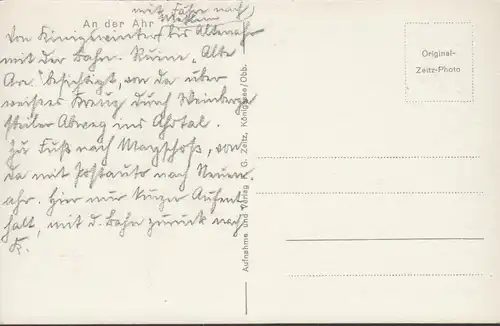 mit Fähre nach
Mehlem
An der Ahr
Von Königswinter bis Altenahr
mit der Bahn. Ruine „Alte
Are" besichtigt, von da über
weisses Kreuz durch Weinberge
steiler Abweg ins Ahrtal.
Zu Fuß nach Mayschoß, von
da mit Postauto nach Neuen-
ahr. Hier nur kurzer Aufent
halt, mit d. Bahn zurück nach
K.
Aufnahme und Verlag G. Zeitz, Königssee/Obb.
Original-
Zeitz-Photo